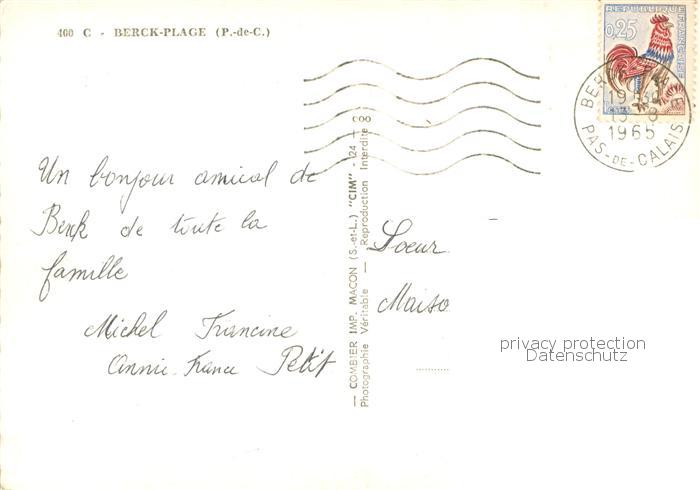 400 C - BERCK-PLAGE (P.-de-C.)
REPUBLIQUE FRANÇAISE
0,25
BERCK PLAGE
19H30
13-8
1965
PAS-DE-CALAIS
Un bonjour amical de
Berck de toute la
famille
Michel Francine
Annie-France Petit
— COMBIER IMP. MACON (S.-et-L.) "CIM" - 124 -
Photographie Véritable — Reproduction Interdite
Soeur
Maiso
privacy protection
Datenschutz